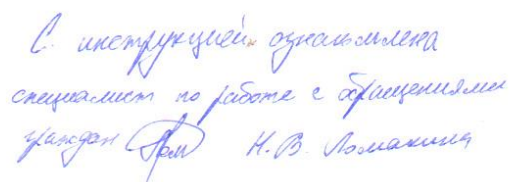 С инструкцией ознакомлена
специалист по работе с обращениями
граждан Н.В. Ломакина